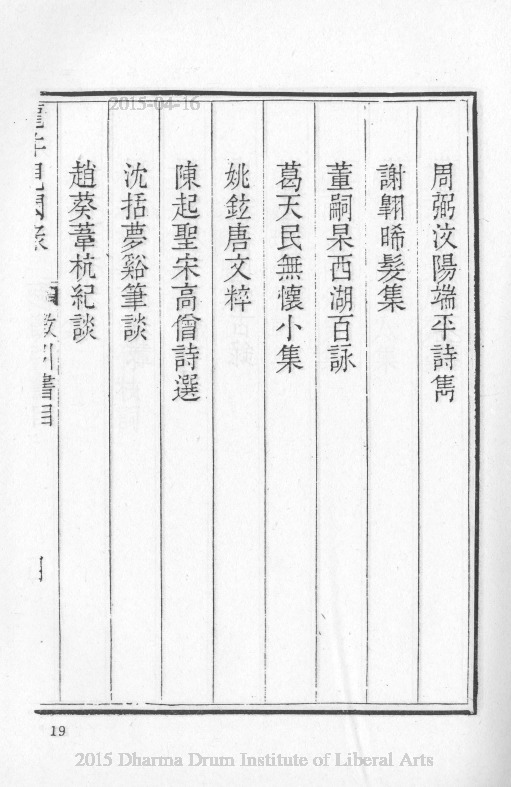 2015-04-16
周弼汶陽端平詩雋
謝翶晞髮集
董嗣杲西湖百詠
葛天民無懷小集
姚鉉唐文粹
陳起聖宋高僧詩選
沈括夢谿筆談
趙葵葦杭紀談
書目
19
2015 Dharma Drum Institute of Liberal Arts